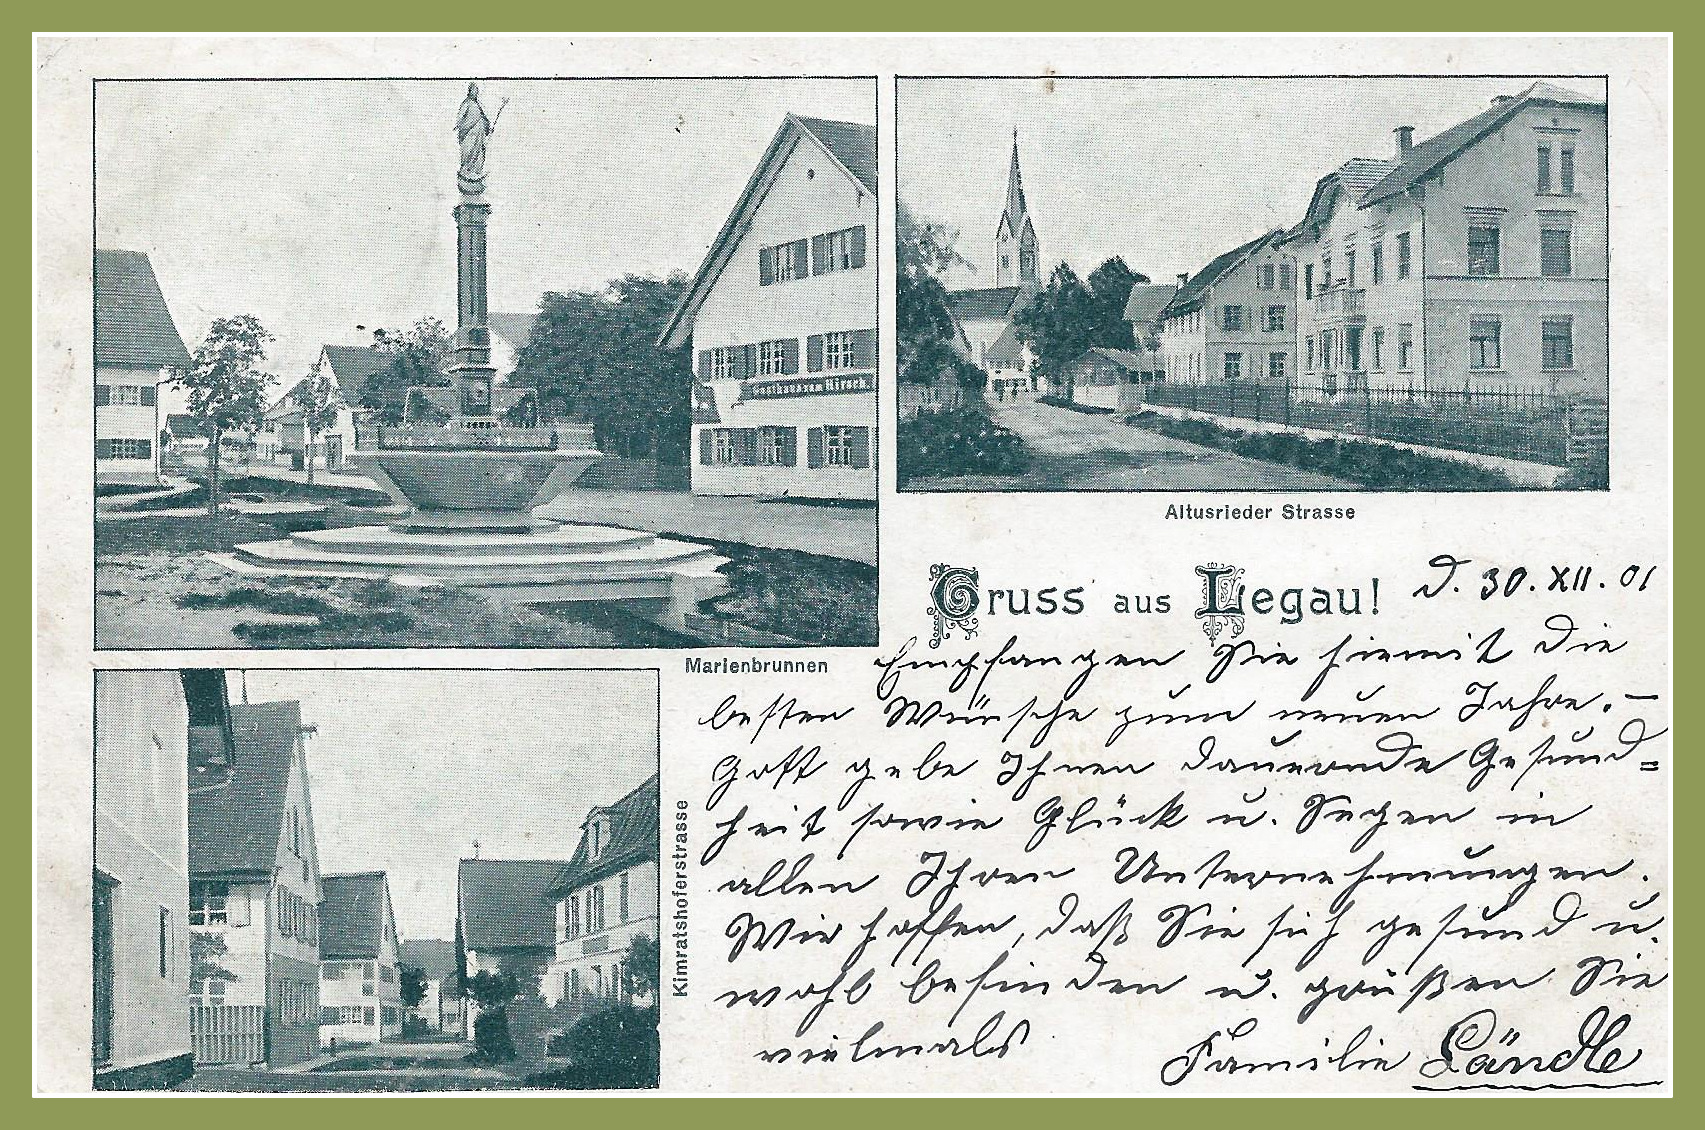 Gasthaus zum Hirsch.
Altusrieder Strasse
Gruss aus Legau!
D. 30. XII. 01
Marienbrunnen
Empfangen Sie hiemit die
besten Wünsche zum neuen Jahre. —
Gott gebe Ihnen dauernde Gesund=
heit sowie Glück u. Segen in
allen Ihren Unternehmungen.
Wir hoffen, daß Sie sich gesund u.
wohl befinden u. grüßen Sie
vielmals
Familie Ländle
Kimratshoferstrasse